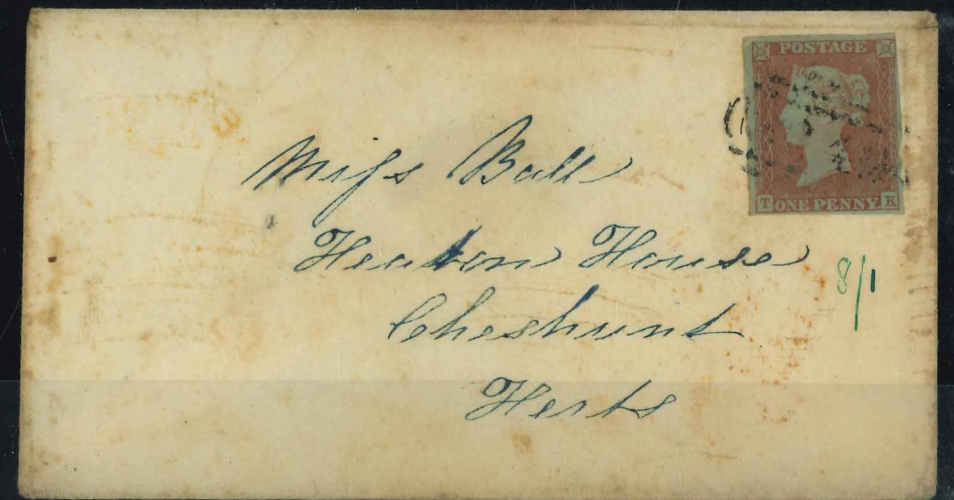 POSTAGE
T ONE PENNY K
Miſs Ball
Heaton House
Cheshunt
Herts
8/1